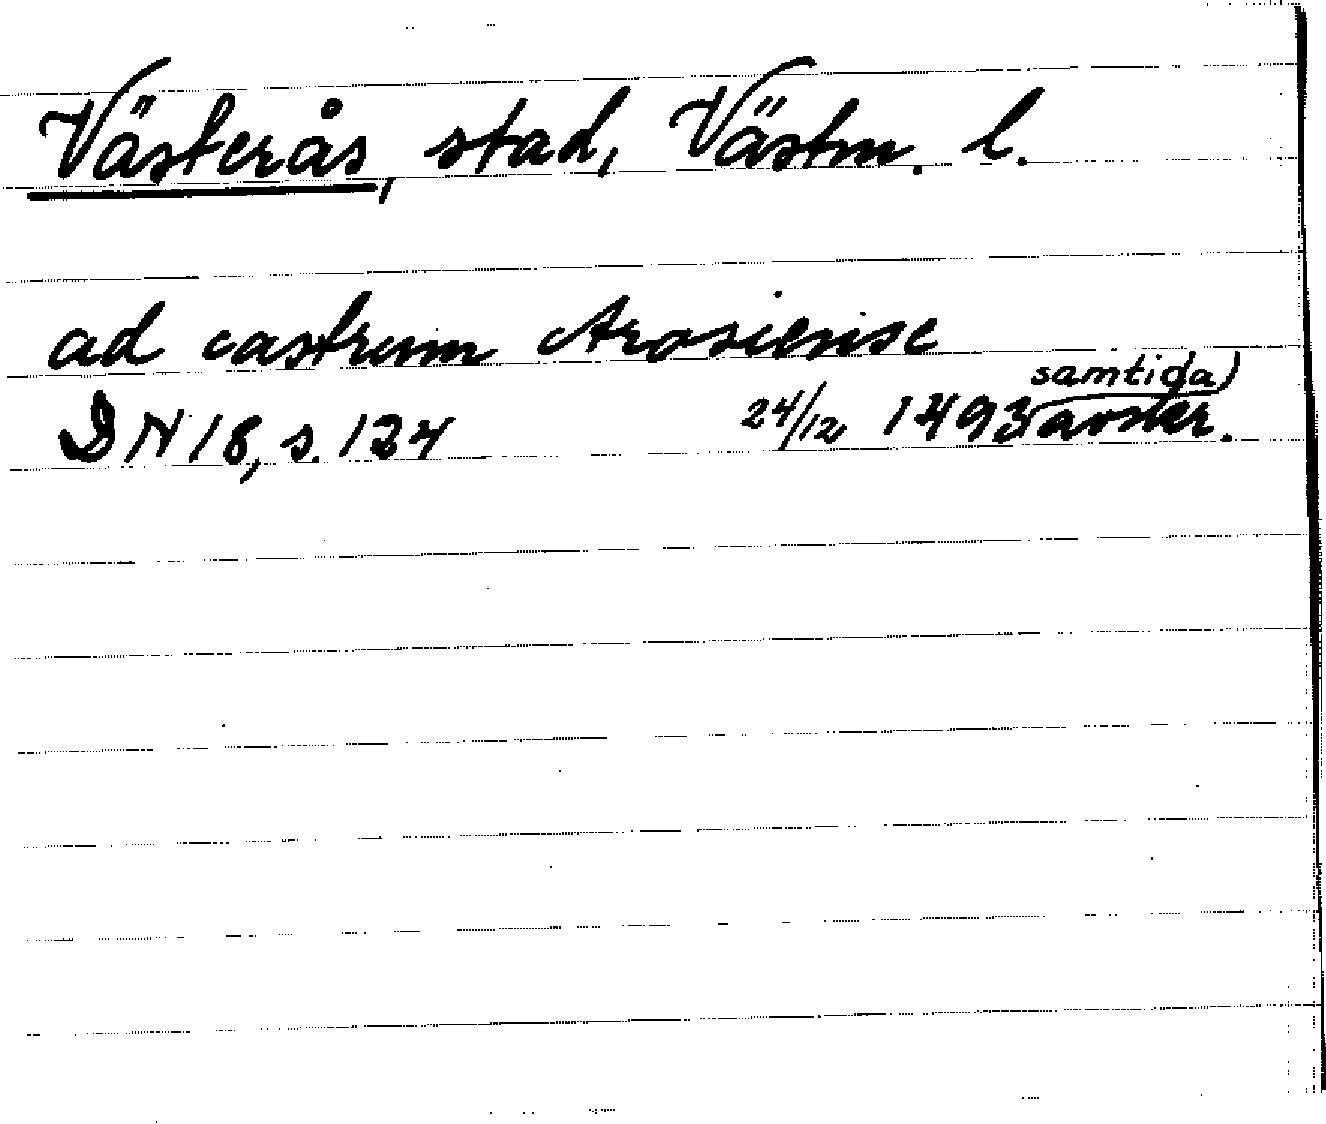 Västerås, stad, Västm. l.
ad castrum Arosiense
samtida)
DN 18, s. 124 24/12 1493 avskr.